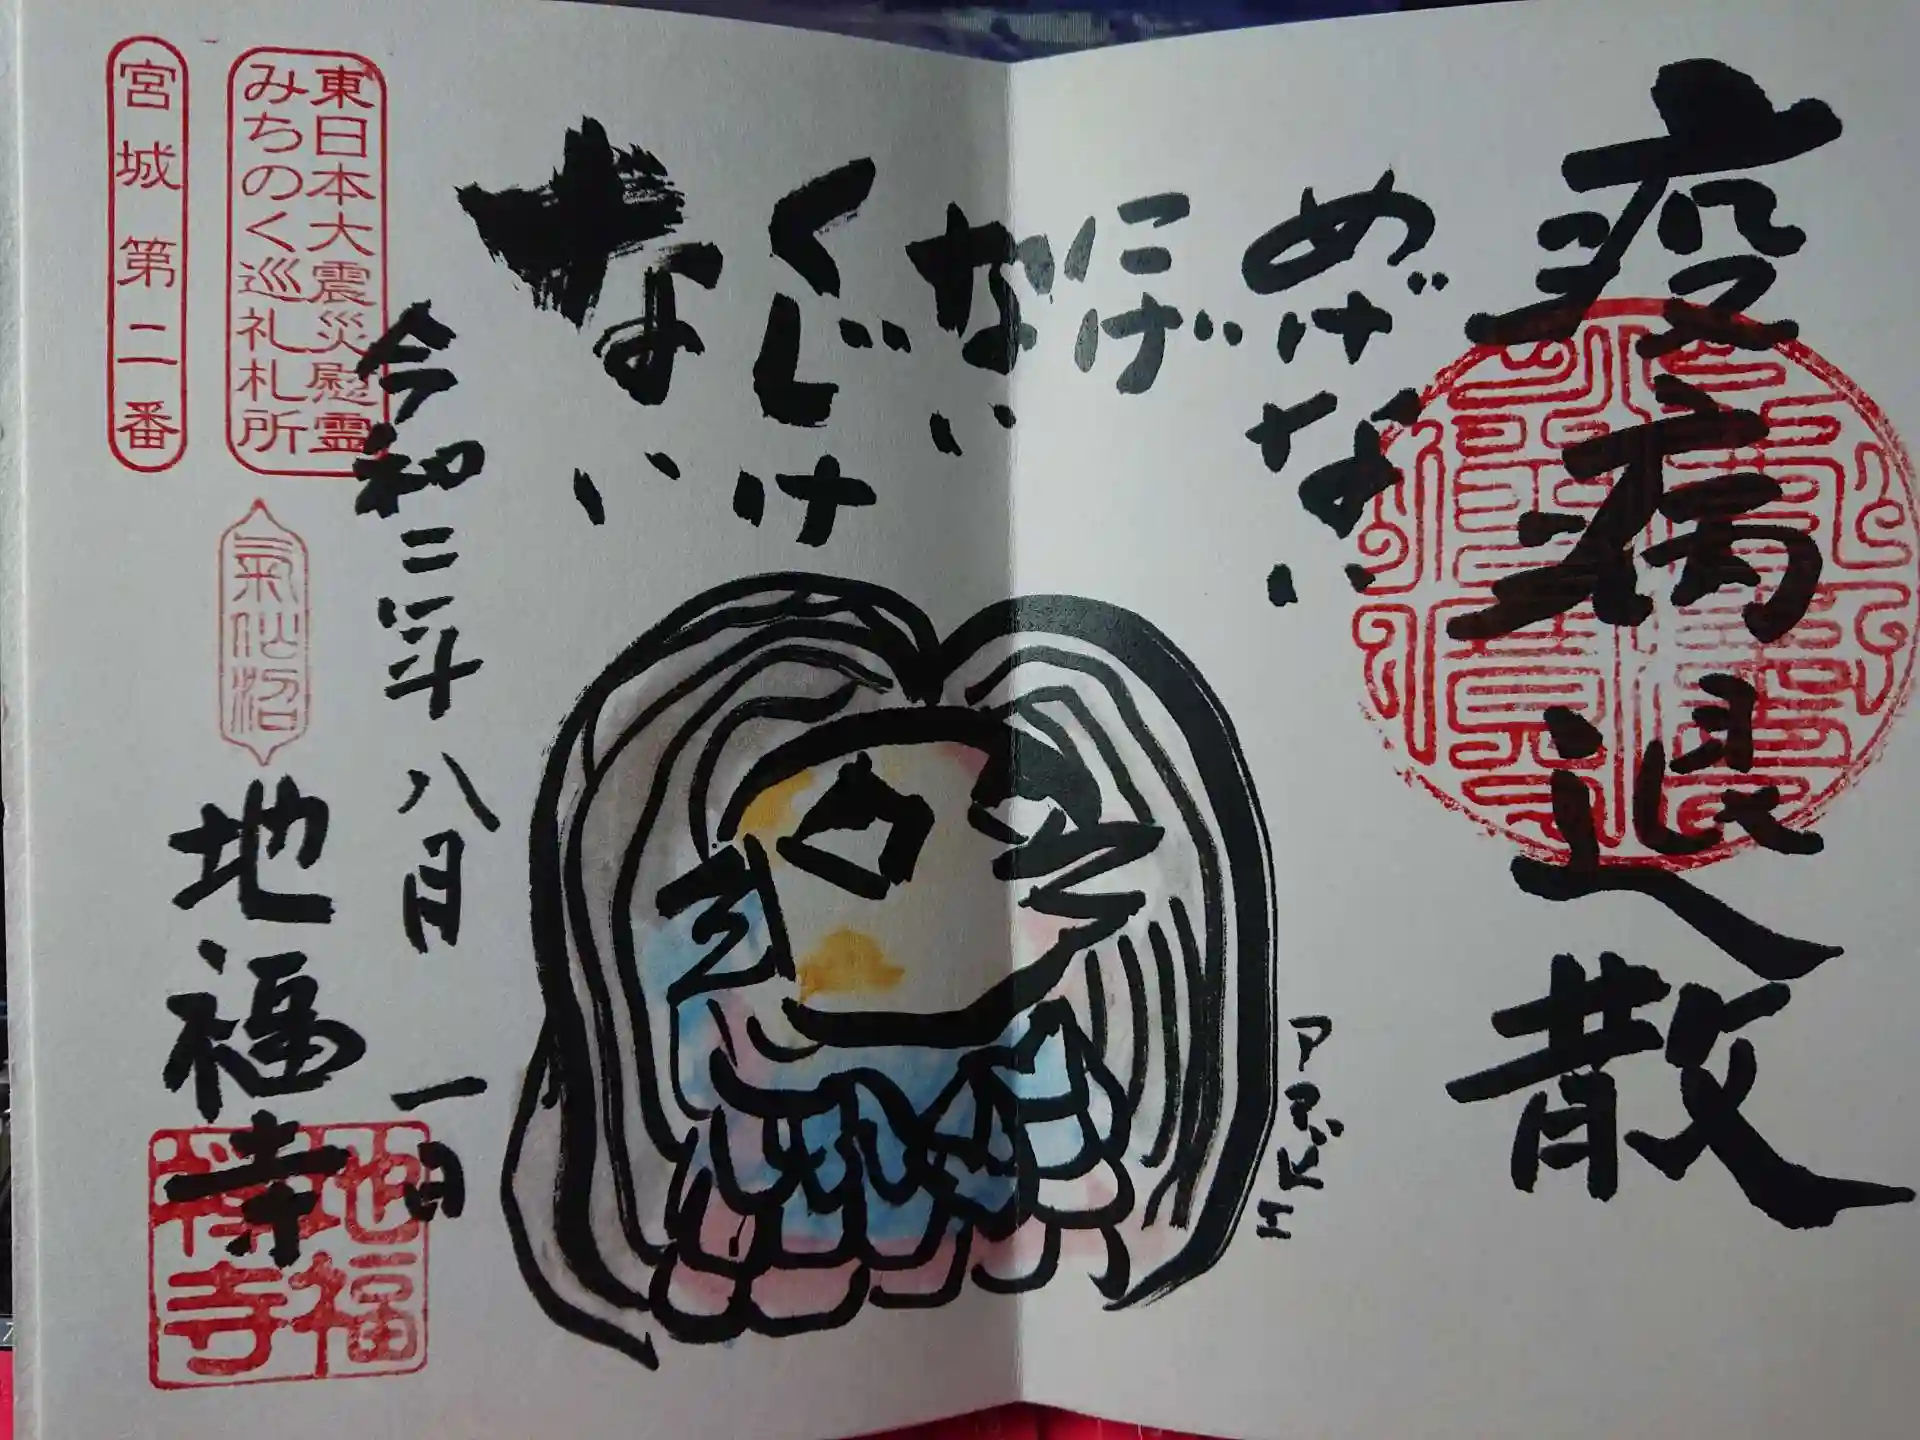 疫病退散
めげない
にげない
くじけない
アマビエ
令和二年八月一日
東日本大震災慰霊
みちのく巡礼札所
氣仙沼
地福寺
地福
禅寺
宮城第二番